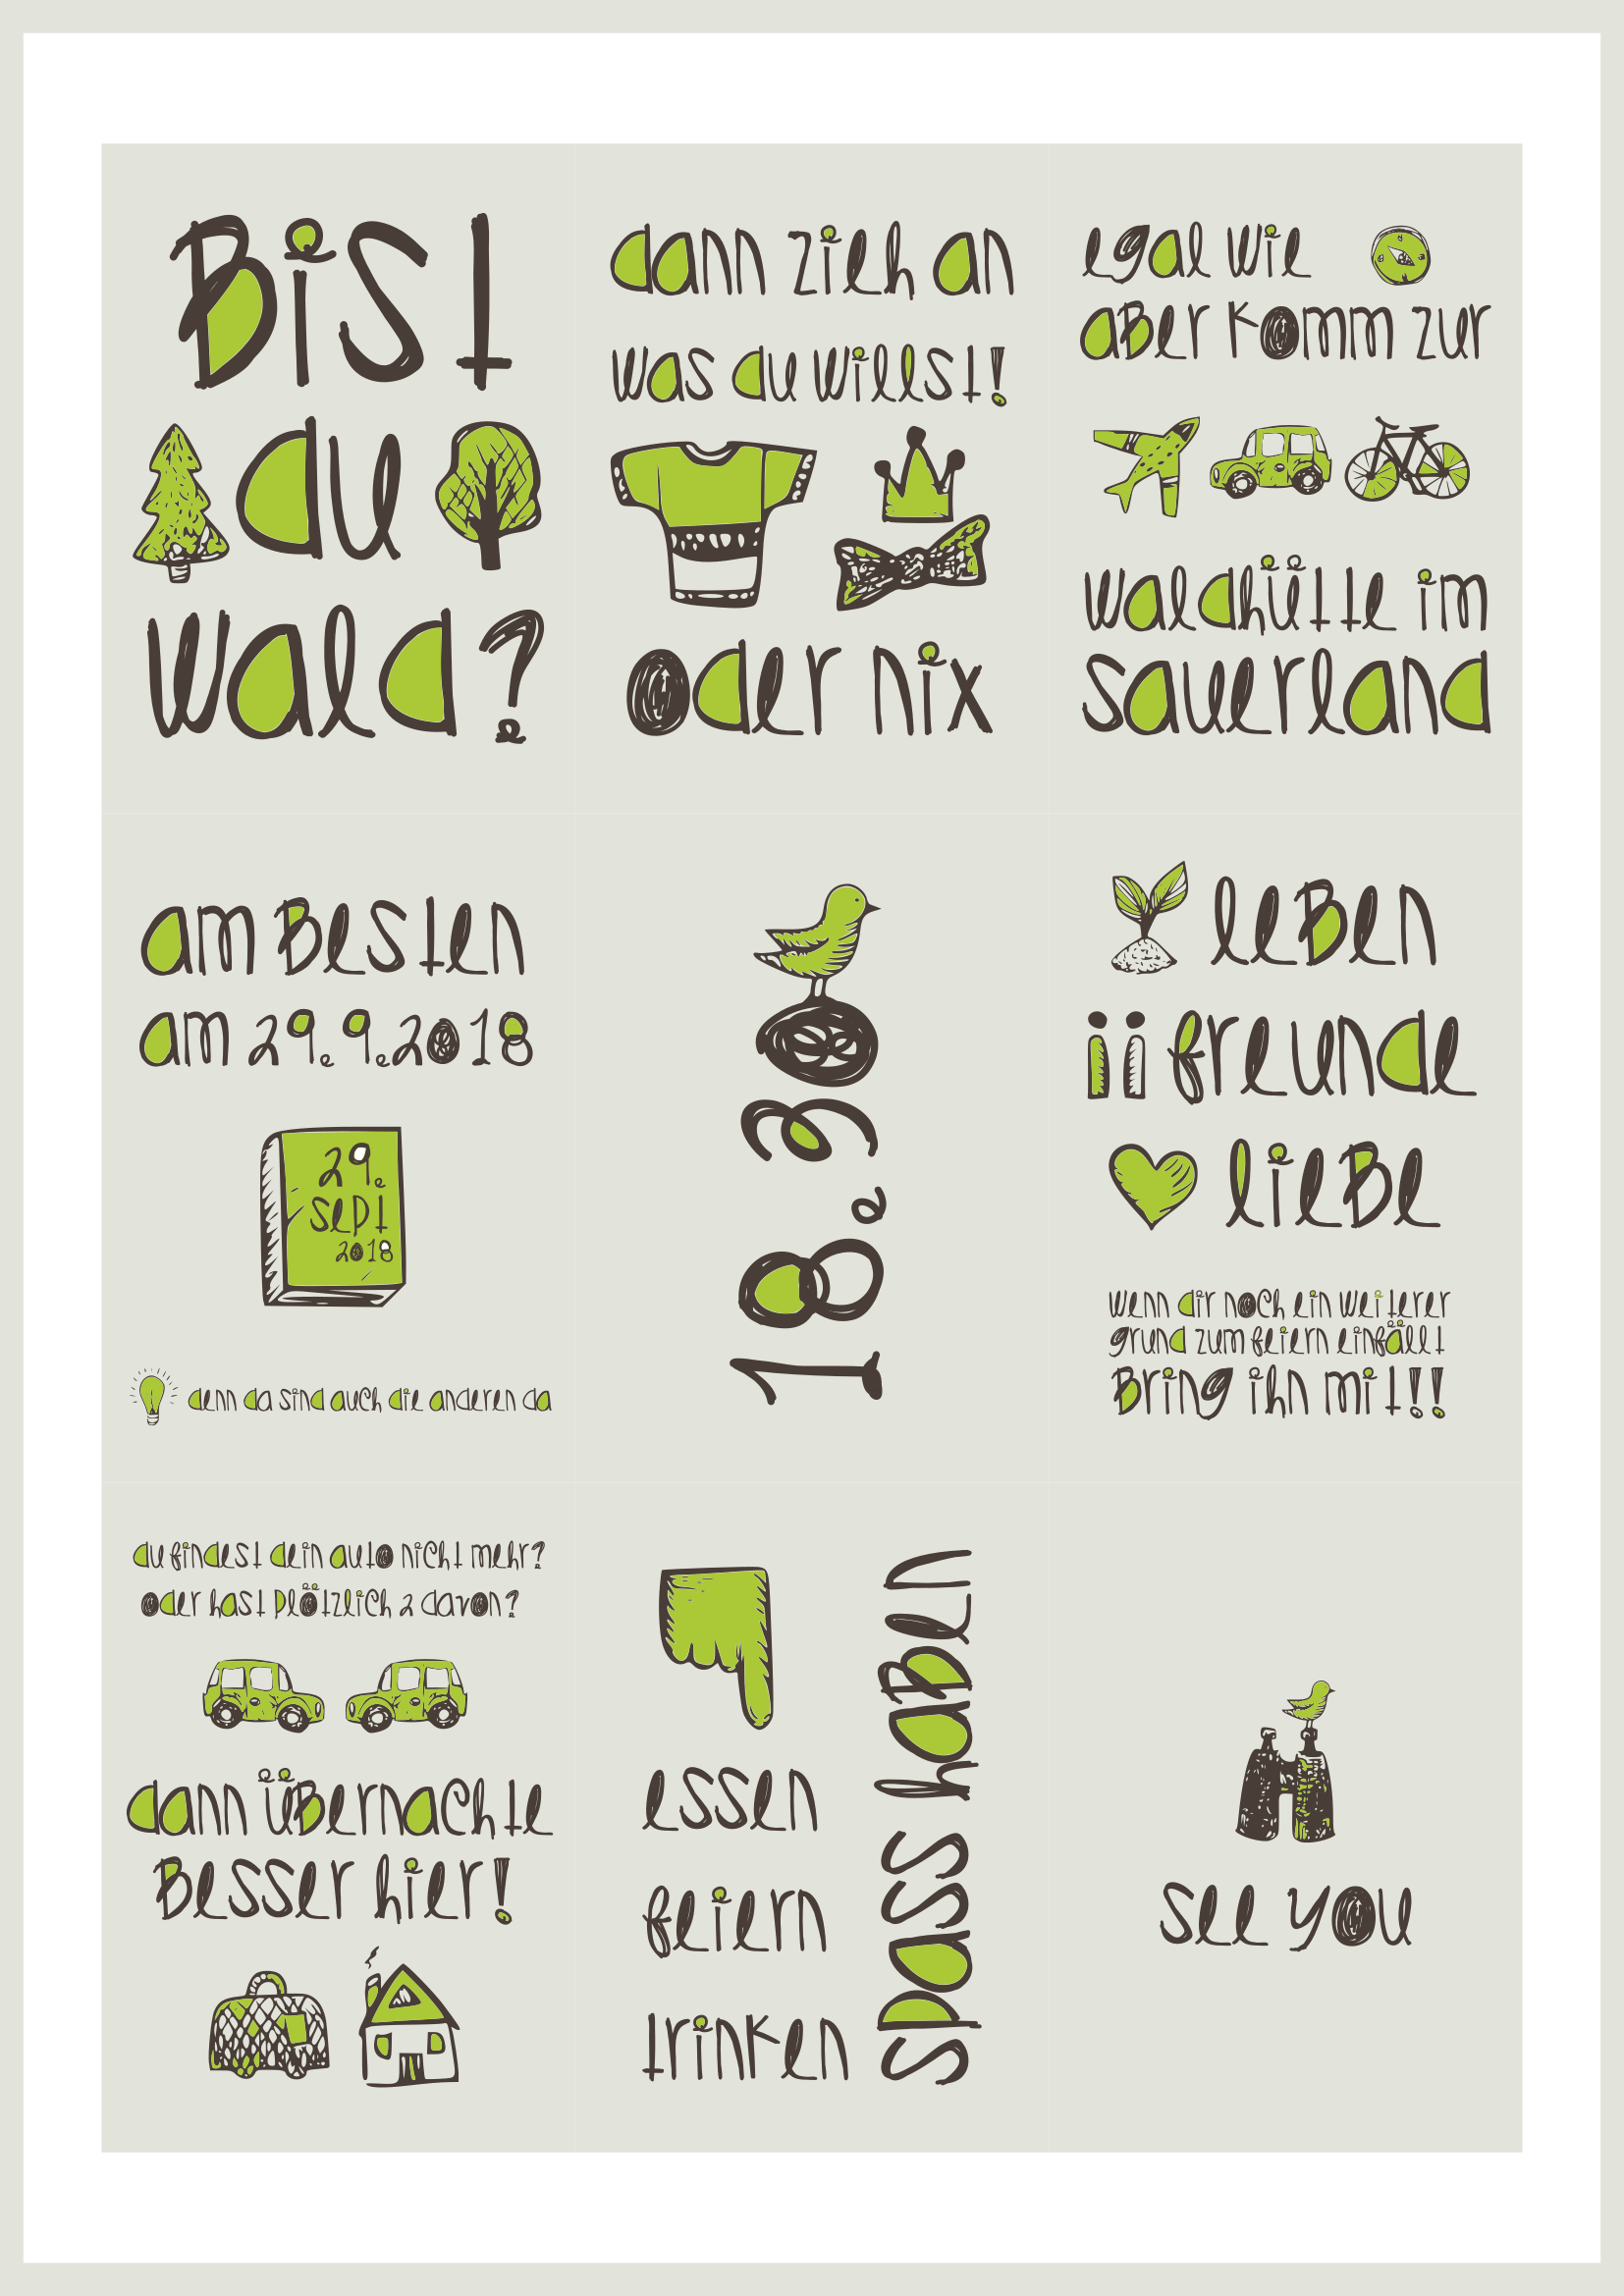 Bist
du
wald?
dann zieh an
was du willst!
oder nix
egal wie
aber komm zur
waldhütte im
sauerland
am Besten
am 29.9.2018
29.
sept
2018
denn da sind auch die anderen da
18.30
leBen
freunde
lieBe
wenn dir noch ein weiterer
grund zum feiern einfällt
Bring ihn mit!!
du findest dein auto nicht mehr?
oder hast plötzlich 2 davon?
dann üBernachte
Besser hier!
essen
feiern
trinken
spass haBen
see you